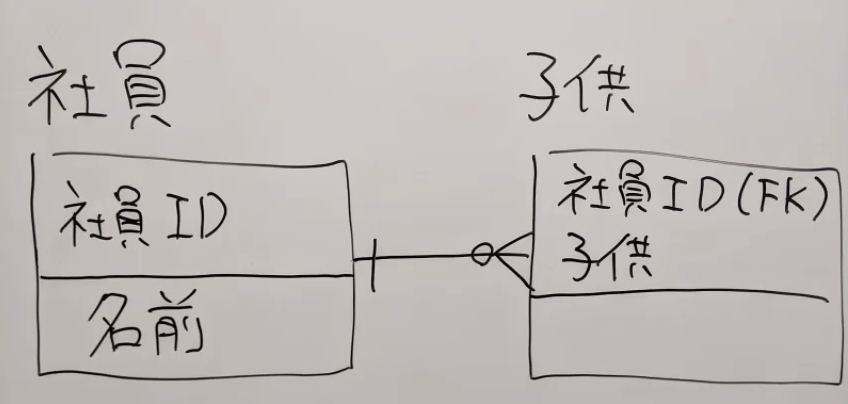 社員
社員ID
名前
子供
社員ID(FK)
子供